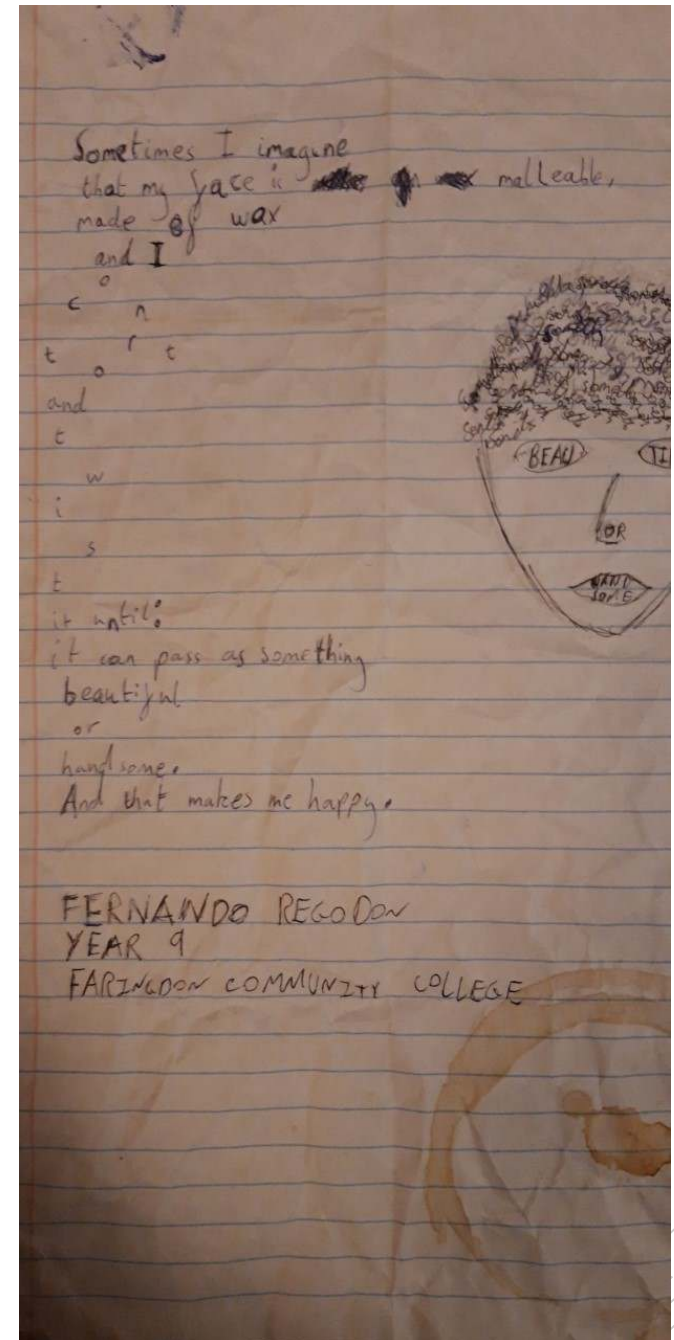 Sometimes I imagine
that my face is malleable,
made of wax
and I
c o n
t o r t
and
t
w
i
s
t
it until:
it can pass as something
beautiful
or
handsome.
And that makes me happy.
BEAU TI
OR
HAND
SOME
FERNANDO REGODON
YEAR 9
FARINGDON COMMUNITY COLLEGE